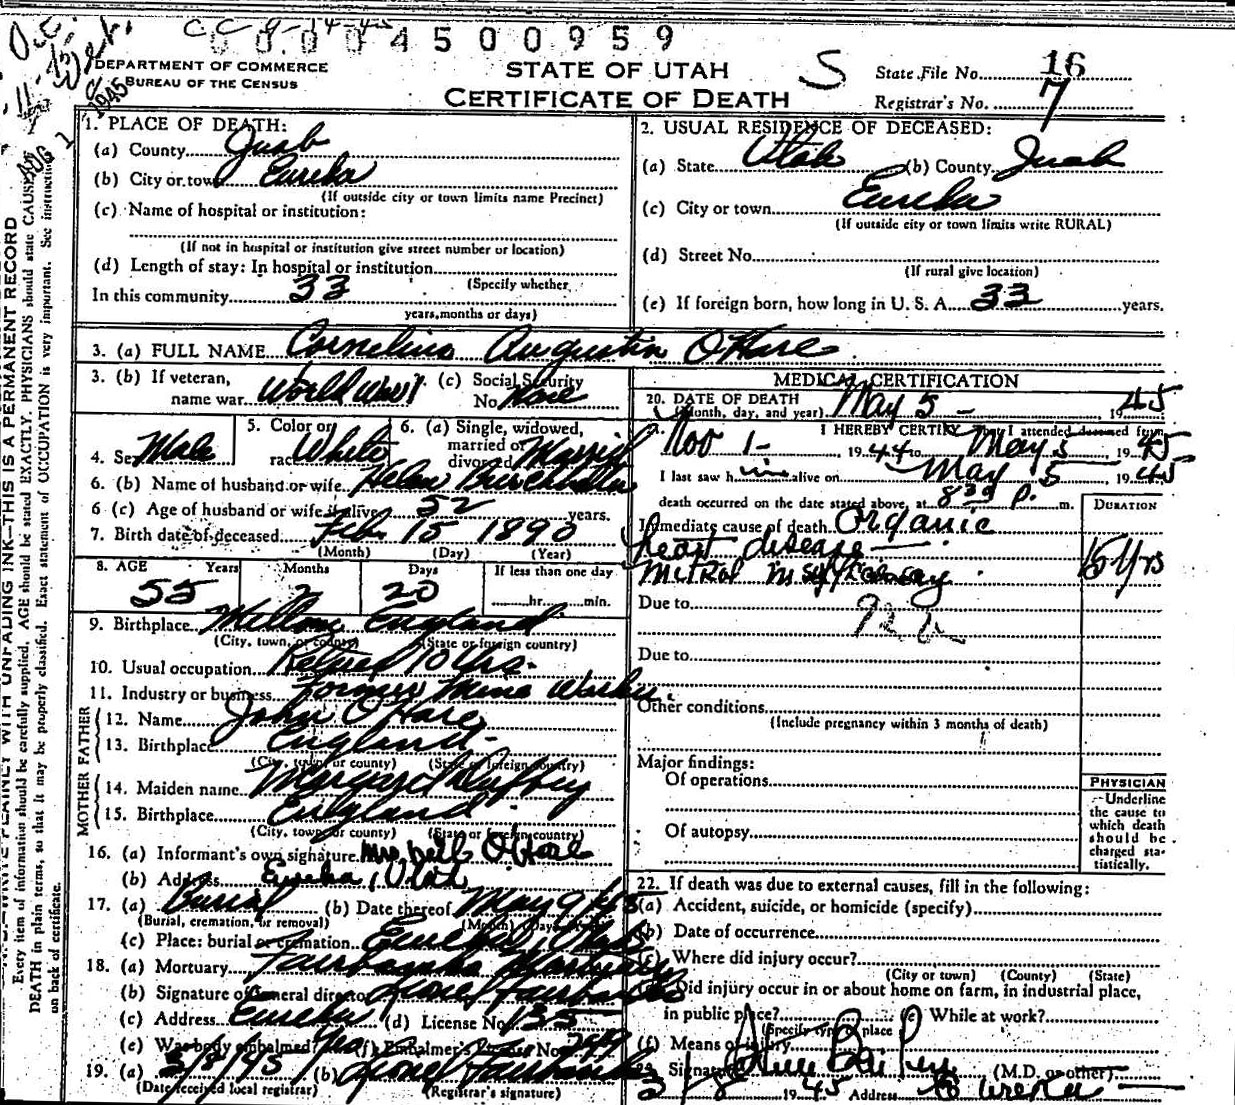 C C 9-14-45
0 0.0 0 4 5 0 0 9 5 9
DEPARTMENT OF COMMERCE
BUREAU OF THE CENSUS
STATE OF UTAH
CERTIFICATE OF DEATH
S
State File No. 16
Registrar's No. 7
AUG 1 1945
1. PLACE OF DEATH:
(a) County Juab
(b) City or town Eureka
(If outside city or town limits name Precinct)
(c) Name of hospital or institution:
(If not in hospital or institution give street number or location)
(d) Length of stay: In hospital or institution
(Specify whether
In this community 33
years, months or days)
2. USUAL RESIDENCE OF DECEASED:
(a) State Utah (b) County Juab
(c) City or town Eureka
(If outside city or town limits write RURAL)
(d) Street No.
(If rural give location)
(e) If foreign born, how long in U. S. A. 33 years.
3. (a) FULL NAME Cornelius Augustin O'Hare
3. (b) If veteran, name war World War 1 (c) Social Security No.
4. Sex Male 5. Color or race White 6. (a) Single, widowed, married or divorced Married
6. (b) Name of husband or wife Helen
6 (c) Age of husband or wife if alive 52 years.
7. Birth date of deceased Feb. 15 1890
(Month) (Day) (Year)
8. AGE Years Months Days If less than one day
55 2 20 hr. min.
9. Birthplace England
(City, town, or county) (State or foreign country)
10. Usual occupation Retired 10 Yrs.
11. Industry or business Former Mine Worker
FATHER
12. Name John O'Hare
13. Birthplace England
(City, town or county) (State or foreign country)
MOTHER
14. Maiden name Margaret Duffey
15. Birthplace England
(City, town or county) (State or foreign country)
16. (a) Informant's own signature Mrs. Nell O'Hare
(b) Address Eureka, Utah
17. (a) Burial (b) Date thereof May 9
(Burial, cremation, or removal) (Month) (Day) (Year)
(c) Place: burial or cremation Eureka, Utah
18. (a) Mortuary Fairbanks Mortuary
(b) Signature of funeral director Lionel Fairbanks
(c) Address Eureka (d) License No. 135
(e) Was body embalmed? Yes (f) Embalmer's License No.
19. (a) 5/8/45 (b) Lionel Fairbanks
(Date received local registrar) (Registrar's signature)
MEDICAL CERTIFICATION
20. DATE OF DEATH
(Month, day, and year) May 5 - 1945
21. I HEREBY CERTIFY that I attended deceased from
Nov 1 - 1944 to May 5 1945
I last saw him alive on May 5 1945
death occurred on the date stated above, at 8 30 P. m.
DURATION
Immediate cause of death Organic
heart disease
Mitral
15 Yrs
Due to
92
Due to
Other conditions
(Include pregnancy within 3 months of death)
Major findings:
Of operations
Of autopsy
PHYSICIAN
Underline
the cause to
which death
should be
charged sta-
tistically.
22. If death was due to external causes, fill in the following:
(a) Accident, suicide, or homicide (specify)
(b) Date of occurrence
(c) Where did injury occur?
(City or town) (County) (State)
(d) Did injury occur in or about home on farm, in industrial place,
in public place? (e) While at work?
(Specify type of place
(f) Means of injury
23. Signature (M.D. or other)
1945 Address Eureka
PLAINLY WITH UNFADING INK—THIS IS A PERMANENT RECORD
Every item of information should be carefully supplied. AGE should be stated EXACTLY. PHYSICIANS should state CAUSE OF
DEATH in plain terms, so that it may be properly classified. Exact statement of OCCUPATION is very important. See instructions
on back of certificate.